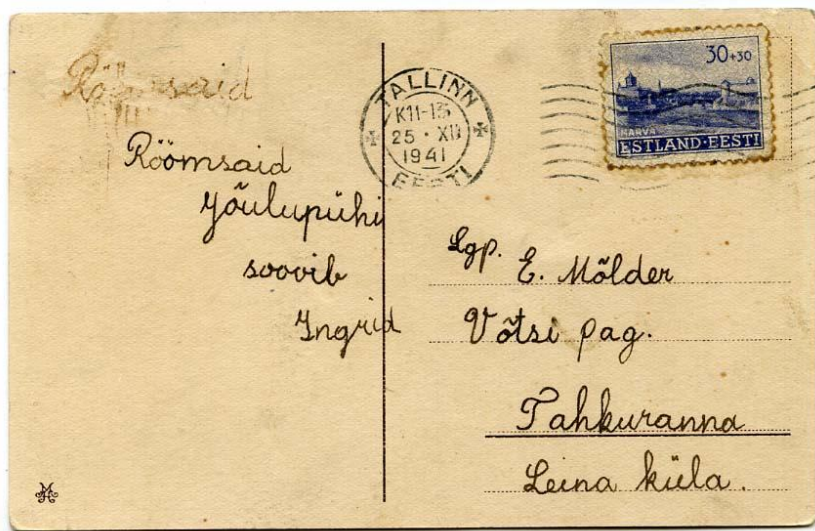 Rõõmsaid
Röömsaid
Jõulupühi
soovib
Ingrid
TALLINN
K11-13
25 · XII
1941
EESTI
30+30
NARVA
ESTLAND·EESTI
Lgp. E. Mõlder
Võtsi pag.
Tahkuranna
Leina küla.